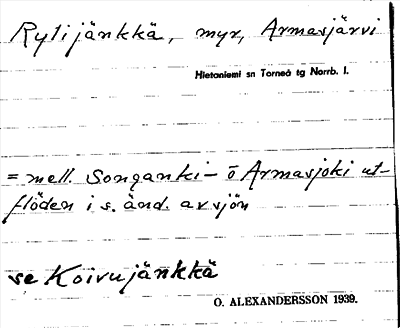 Rytijänkkä, myr, Armasjärvi
Hietaniemi sn Torneå tg Norrb. l.
= mell. Songanki- o Armasjoki ut-
flöden i s. änd. av sjön
se Koivujänkkä
O. ALEXANDERSSON 1939.